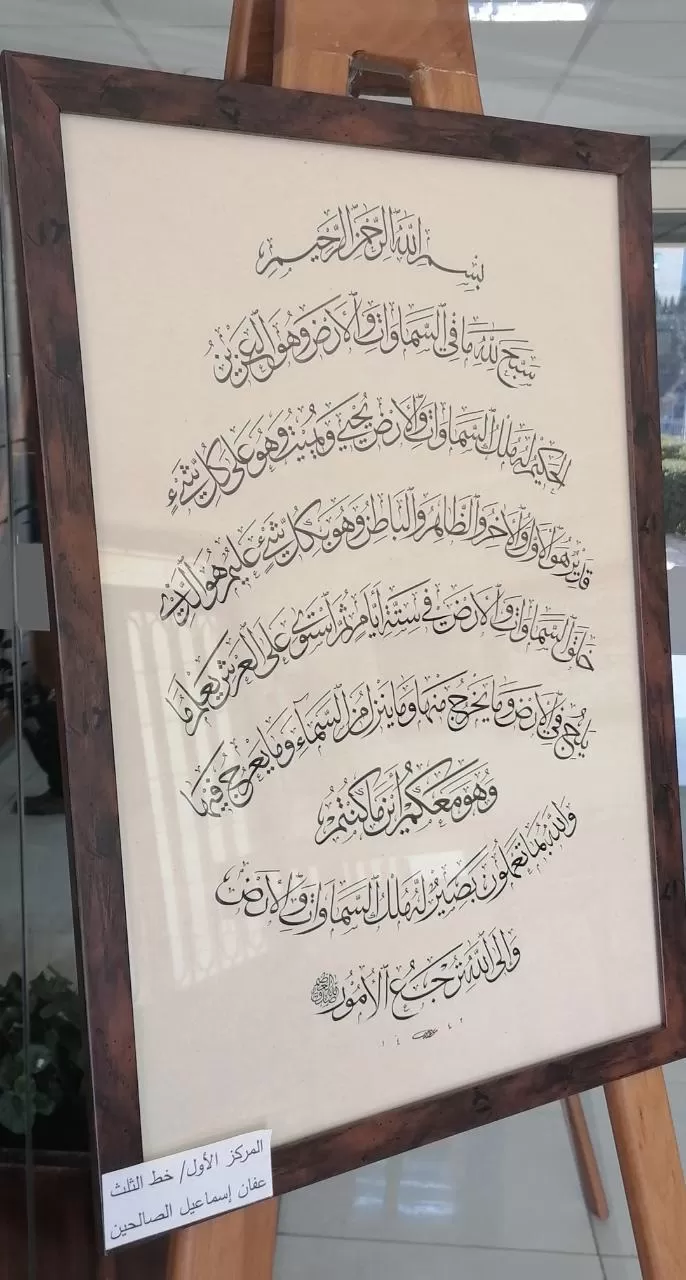 بِسْمِ اللَّهِ الرَّحْمَٰنِ الرَّحِيمِ
سَبَّحَ لِلَّهِ مَا فِي السَّمَاوَاتِ وَالْأَرْضِ وَهُوَ الْعَزِيزُ
الْحَكِيمُ لَهُ مُلْكُ السَّمَاوَاتِ وَالْأَرْضِ يُحْيِي وَيُمِيتُ وَهُوَ عَلَىٰ كُلِّ شَيْءٍ
قَدِيرٌ هُوَ الْأَوَّلُ وَالْآخِرُ وَالظَّاهِرُ وَالْبَاطِنُ وَهُوَ بِكُلِّ شَيْءٍ عَلِيمٌ هُوَ الَّذِي
خَلَقَ السَّمَاوَاتِ وَالْأَرْضَ فِي سِتَّةِ أَيَّامٍ ثُمَّ اسْتَوَىٰ عَلَى الْعَرْشِ يَعْلَمُ مَا
يَلِجُ فِي الْأَرْضِ وَمَا يَخْرُجُ مِنْهَا وَمَا يَنْزِلُ مِنَ السَّمَاءِ وَمَا يَعْرُجُ فِيهَا
وَهُوَ مَعَكُمْ أَيْنَ مَا كُنْتُمْ
وَاللَّهُ بِمَا تَعْمَلُونَ بَصِيرٌ لَهُ مُلْكُ السَّمَاوَاتِ وَالْأَرْضِ
وَإِلَى اللَّهِ تُرْجَعُ الْأُمُورُ
١٤٤٢
المركز الأول/ خط الثلث
عفان إسماعيل الصالحين